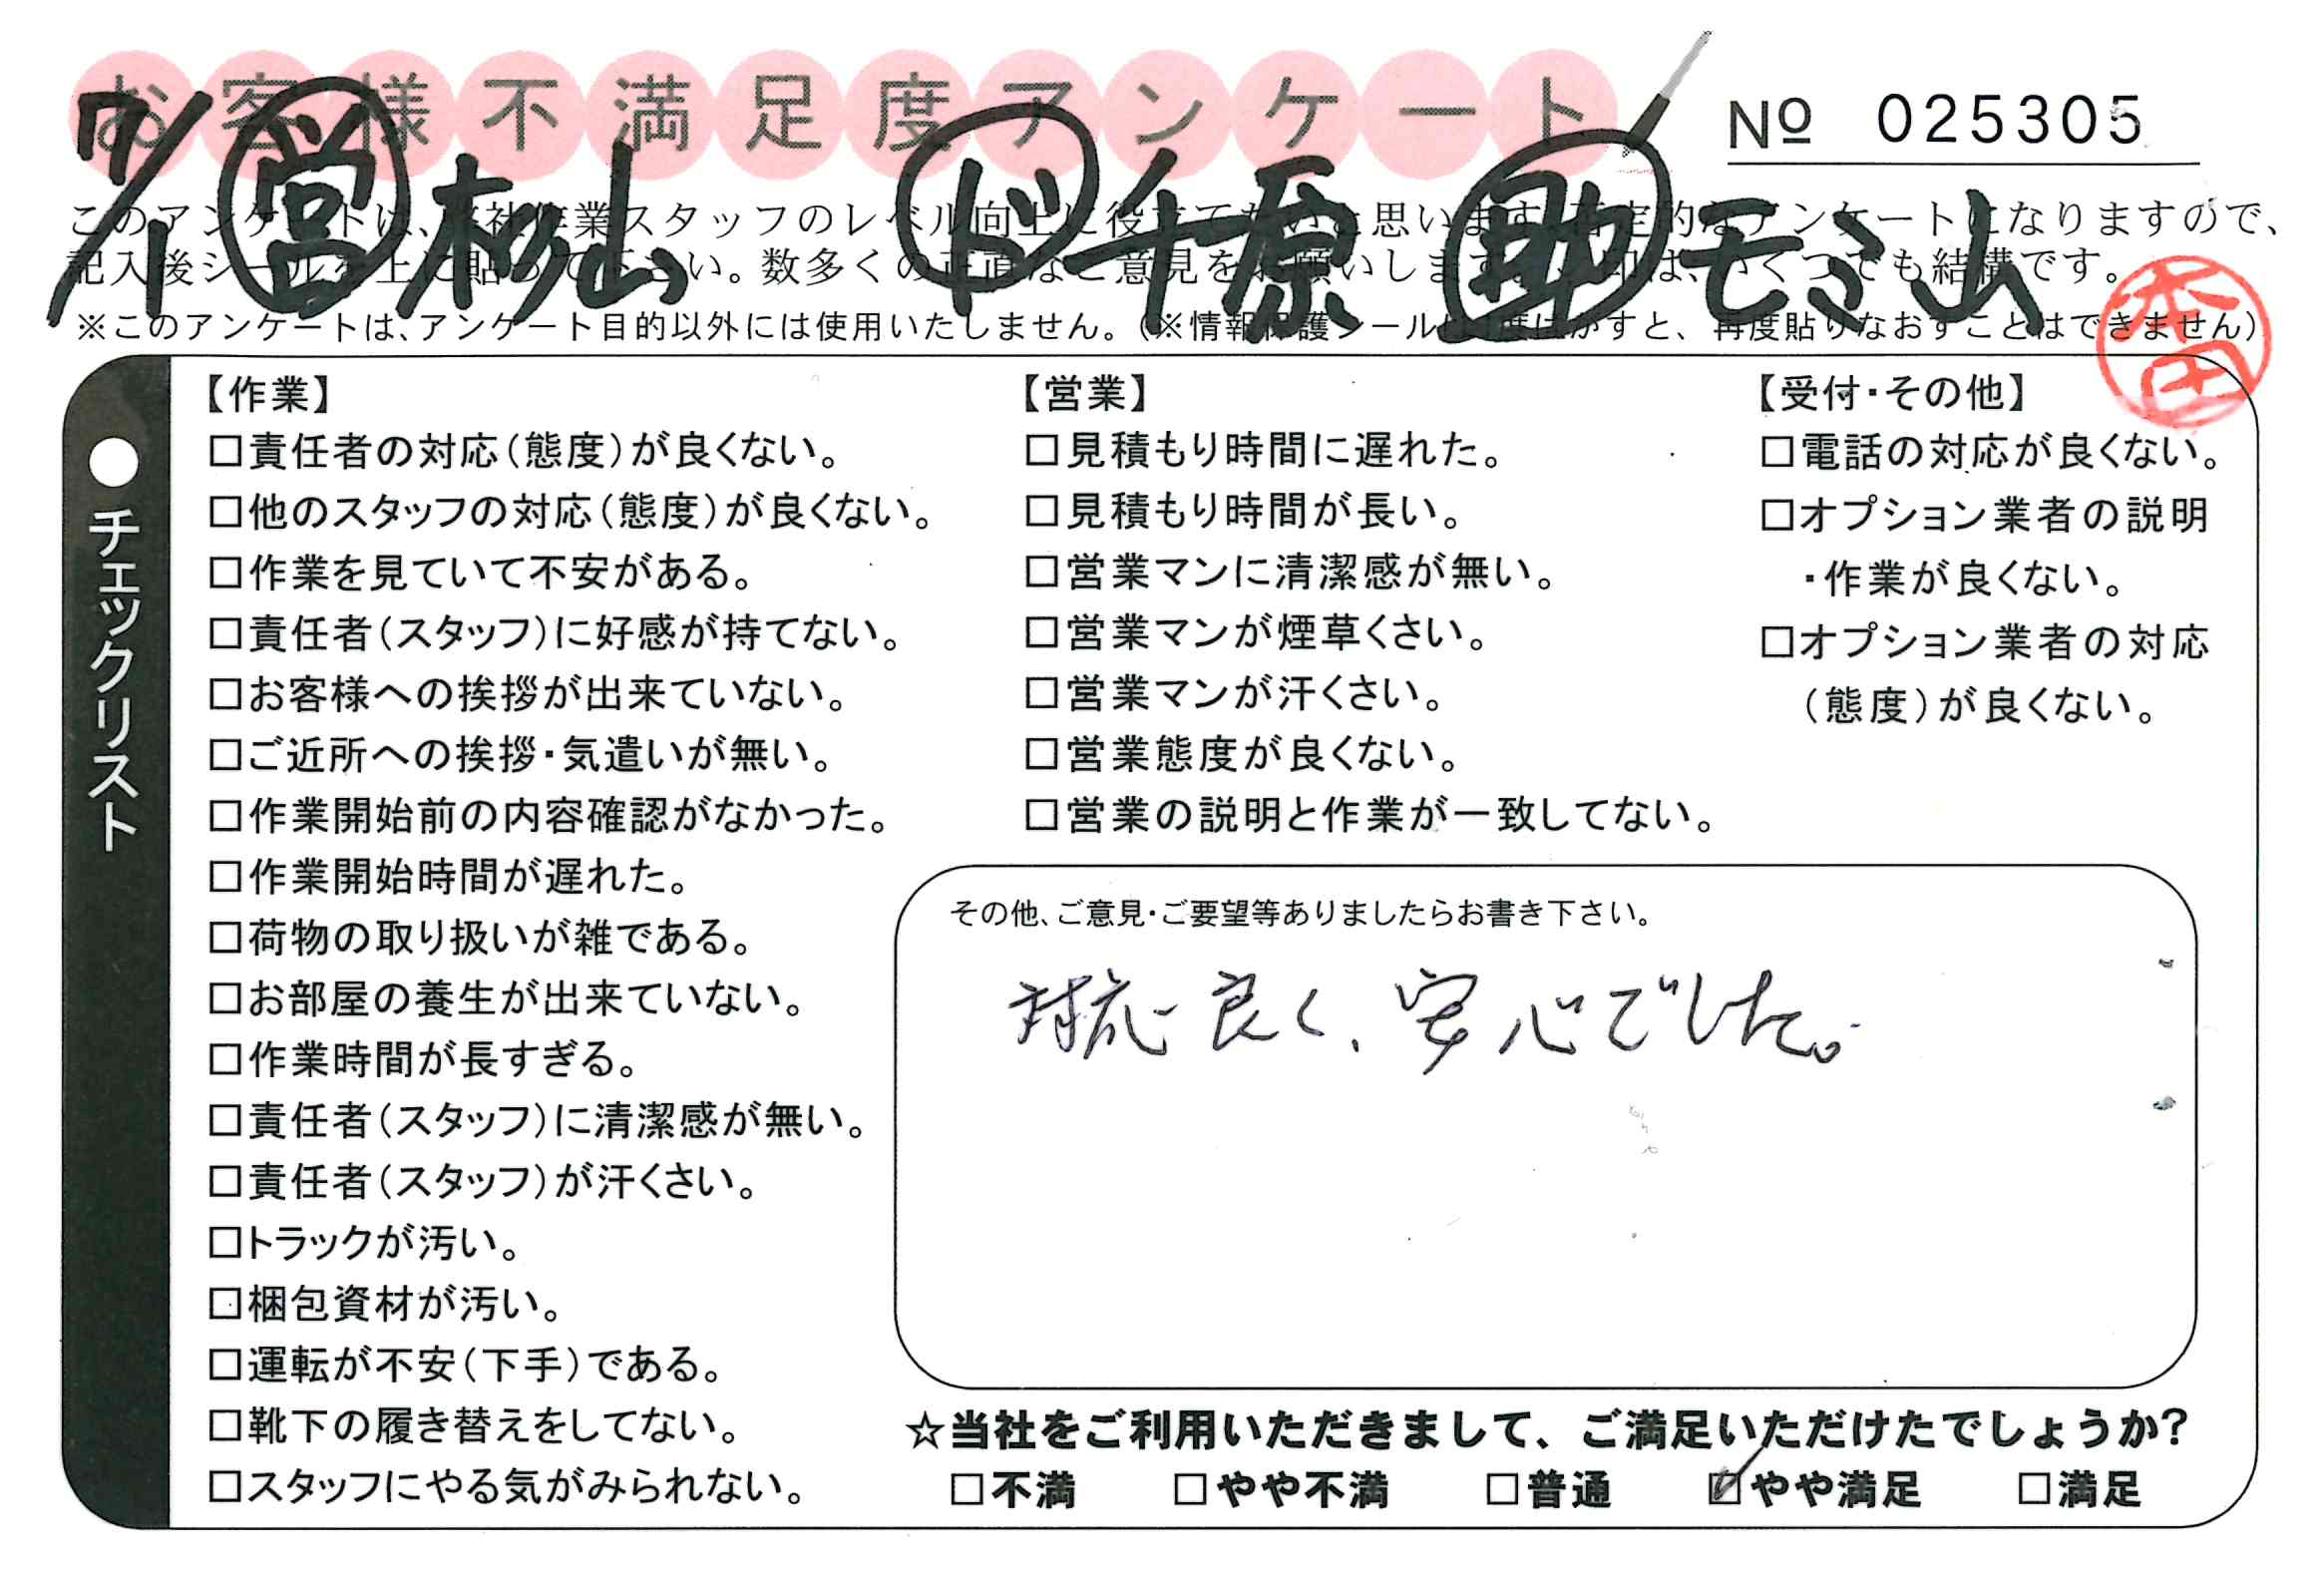 お客様不満足度アンケート
№ 025305
7/1 営 杉山 ド 千原 助 モミ山
このアンケートは、当社作業スタッフのレベル向上に役立てたいと思います。否定的なアンケートになりますので、
記入後シールを上に貼って下さい。数多くの正直なご意見をお願いします。✓印は、いくつでも結構です。
※このアンケートは、アンケート目的以外には使用いたしません。(※情報保護シールは1度はがすと、再度貼りなおすことはできません)
本田
●チェックリスト
【作業】
□責任者の対応(態度)が良くない。
□他のスタッフの対応(態度)が良くない。
□作業を見ていて不安がある。
□責任者(スタッフ)に好感が持てない。
□お客様への挨拶が出来ていない。
□ご近所への挨拶・気遣いが無い。
□作業開始前の内容確認がなかった。
□作業開始時間が遅れた。
□荷物の取り扱いが雑である。
□お部屋の養生が出来ていない。
□作業時間が長すぎる。
□責任者(スタッフ)に清潔感が無い。
□責任者(スタッフ)が汗くさい。
□トラックが汚い。
□梱包資材が汚い。
□運転が不安(下手)である。
□靴下の履き替えをしてない。
□スタッフにやる気がみられない。
【営業】
□見積もり時間に遅れた。
□見積もり時間が長い。
□営業マンに清潔感が無い。
□営業マンが煙草くさい。
□営業マンが汗くさい。
□営業態度が良くない。
□営業の説明と作業が一致してない。
【受付・その他】
□電話の対応が良くない。
□オプション業者の説明
・作業が良くない。
□オプション業者の対応
(態度)が良くない。
その他、ご意見・ご要望等ありましたらお書き下さい。
対応良く、安心でした。
☆当社をご利用いただきまして、ご満足いただけたでしょうか?
□不満 □やや不満 □普通 ☑やや満足 □満足